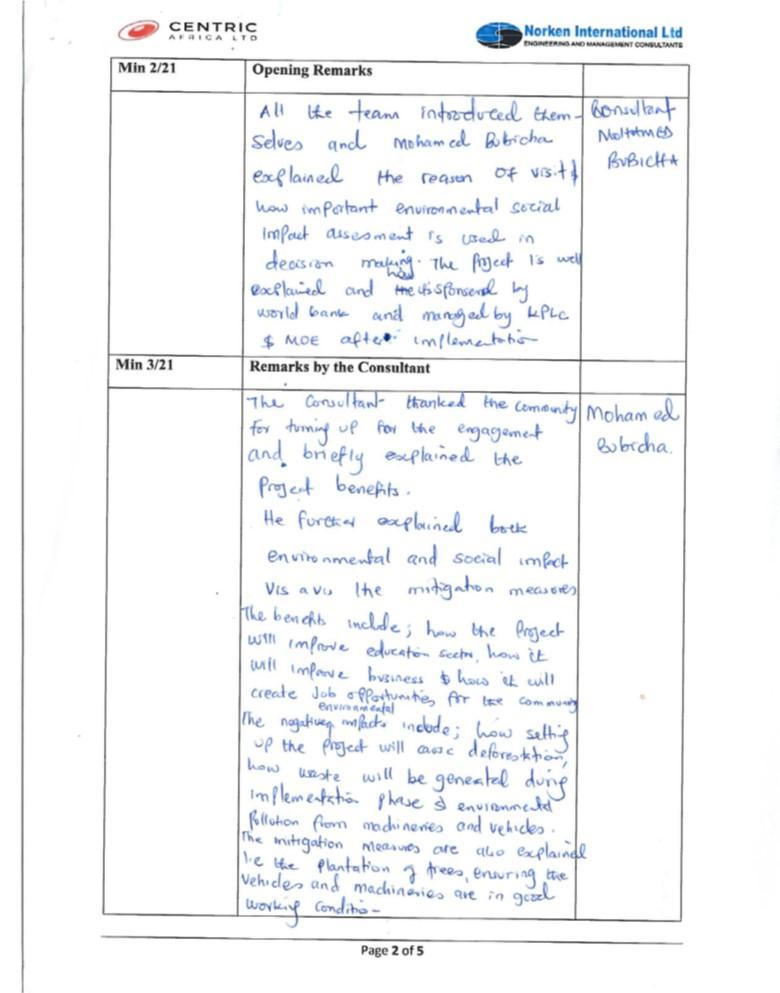 CENTRIC
AFRICA LTD
Norken International Ltd
ENGINEERING AND MANAGEMENT CONSULTANTS
Min 2/21
Opening Remarks
All the team introduced them-
selves and Mohamed Bubicha
explained the reason of visit &
how important environmental social
impact assesment is used in
decision making. The Project is well
how
explained and the its sponserd by
world bank and managed by KPLC
$ MOE after implementation
Consultant
MOHAMED
BUBICHA
Min 3/21
Remarks by the Consultant
The Consultant thanked the community
for turning up for the engagement
and briefly explained the
Project benefits.
He further explained both
environmental and social impact
vis a vis the mitigation measures
The benefits include; how the Project
will improve education sector, how it
will improve business $ how it will
create Job opportunities for the community
environmental
The negative impacts include; how setting
up the Project will cause deforestation,
how waste will be generated during
implementation phase & environmental
pollution from machineries and vehicles.
The mitigation measures are also explained
i.e the plantation of trees, ensuring the
vehicles and machineries are in good
working condition
Mohamed
Bubicha.
Page 2 of 5